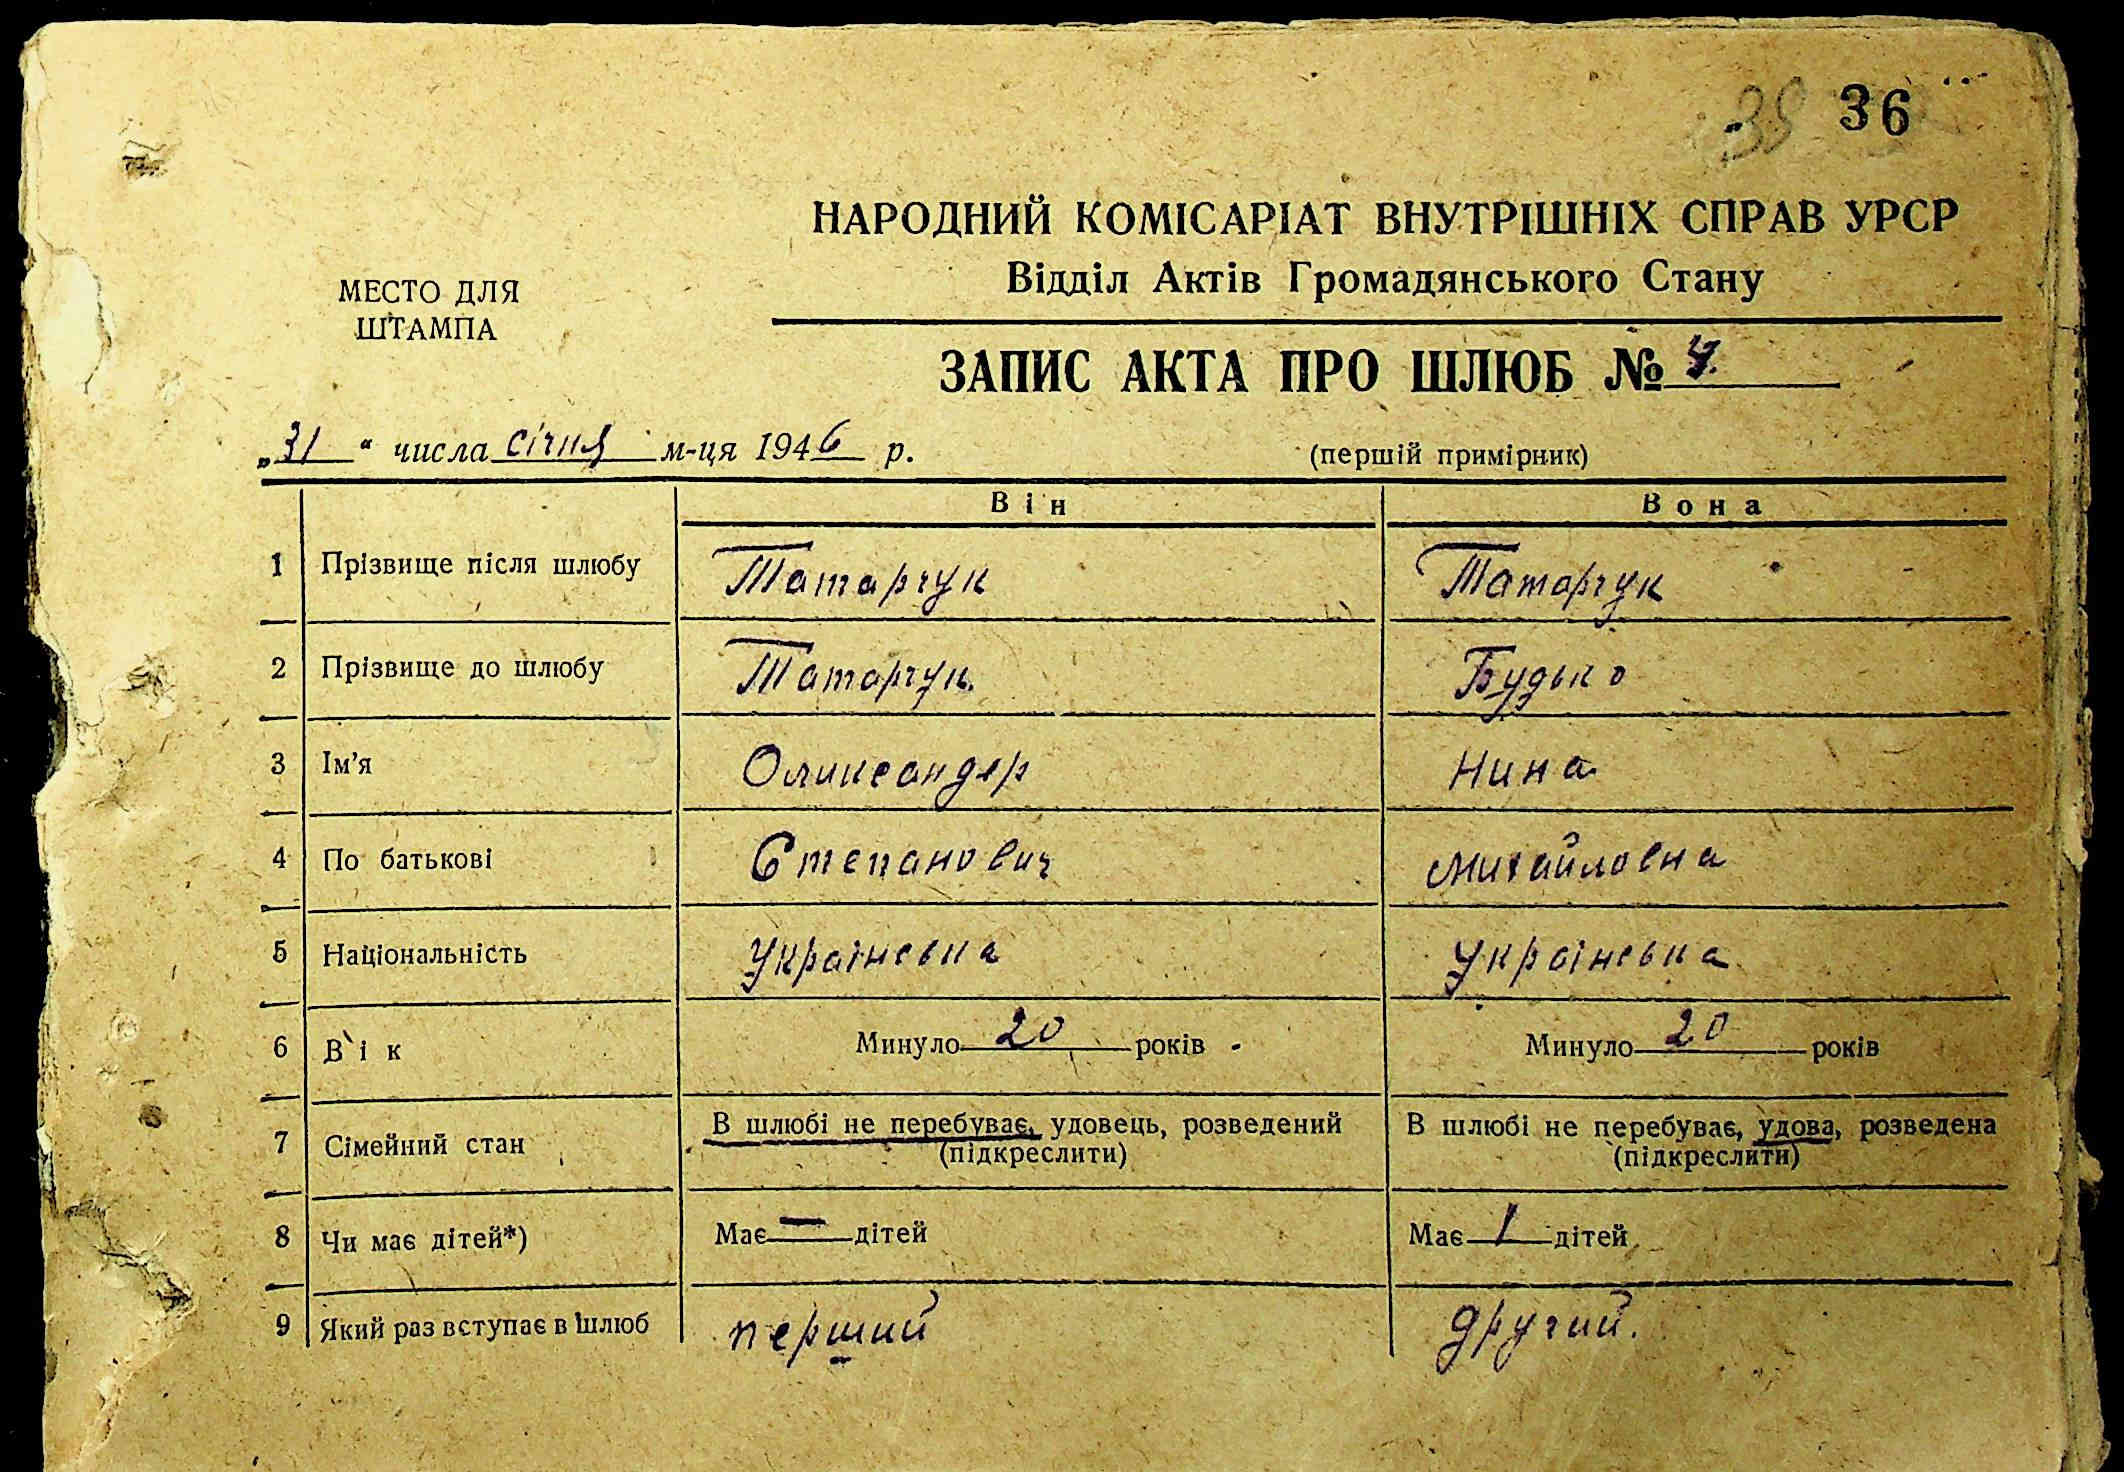 39 36
НАРОДНИЙ КОМІСАРІАТ ВНУТРІШНІХ СПРАВ УРСР
Відділ Актів Громадянського Стану
МЕСТО ДЛЯ
ШТАМПА
ЗАПИС АКТА ПРО ШЛЮБ № 4.
„31" числа січня м-ця 1946 р. (першій примірник)
Він Вона
1 Прізвище після шлюбу Татарчук Татарчук
2 Прізвище до шлюбу Татарчук. Будько
3 Ім'я Олександер Нина
4 По батькові Степанович Михайловна
5 Національність Українська Українська
6 Вік Минуло 20 років Минуло 20 років
7 Сімейний стан В шлюбі не перебуває, удовець, розведений В шлюбі не перебуває, удова, розведена
(підкреслити) (підкреслити)
8 Чи має дітей*) Має — дітей Має 1 дітей
9 Який раз вступає в шлюб перший другий.